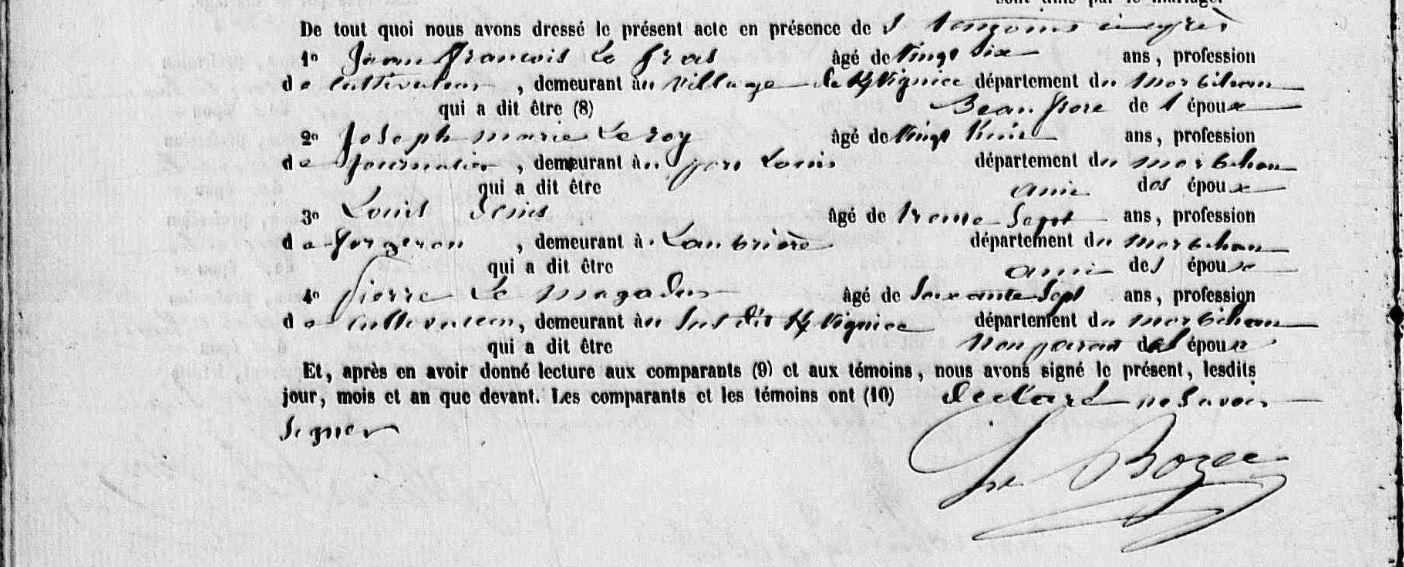 De tout quoi nous avons dressé le présent acte en présence de
1º Jean François Le Gras âgé de Vingt six ans, profession
de Cultivateur, demeurant au Village de départemen​t du Morbihan
qui a dit être (8) Beau frère de l'époux
2º Joseph Marie Le Roy âgé de Vingt ans, profession
de Journalier, demeurant à port Louis département du Morbihan
qui a dit être ami des époux
3º Louis Denis âgé de trente Sept ans, profession
de forgeron, demeurant à département du Morbihan
qui a dit être ami des époux
4º Pierre Le Magadur âgé de Soixante Sept ans, profession
de Cultivateur, demeurant au Susdit département du Morbihan
qui a dit être Non parent des époux
Et, après en avoir donné lecture aux comparants (9) et aux témoins, nous avons signé le présent, lesdits
jour, mois et an que devant. Les comparants et les témoins ont (10) declaré ne Savoir
Signer
Le Bozec